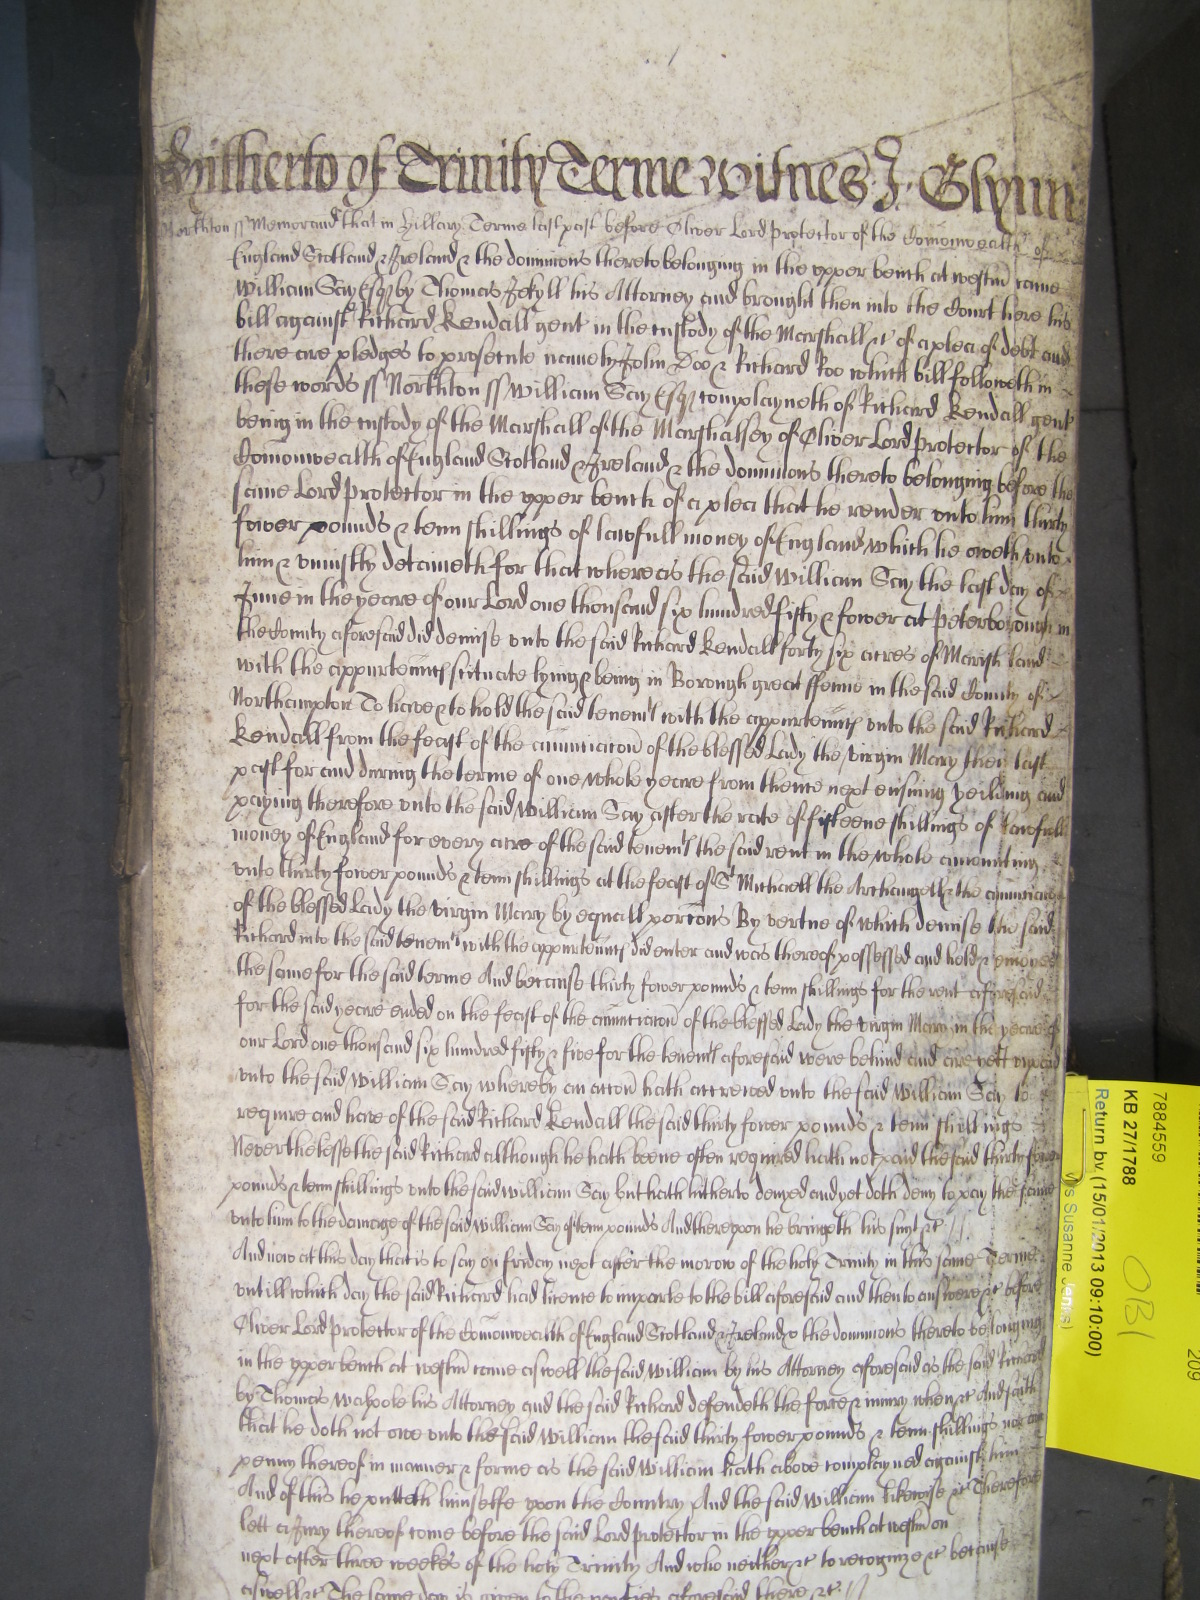 Hitherto of Trinity Terme Witnes J. Glynn
Northton ss Memorand that in Hillary Terme last past before Oliver Lord Protector of the Comonwealth of
England Scotland & Ireland & the dominions thereto belonging in the upper bench at westm came
William Say Esqr by Thomas Jekyll his Attorney and brought then into the Court here his
bill against Richard Kendall gent in the custody of the Marshall &c of a plea of debt and
there are pledges to prosecute namely John Doo & Richard Roo which bill followeth in
these words ss Northton ss William Say Esqr complayneth of Richard Kendall gent
being in the custody of the Marshall of the Marshalsey of Oliver Lord Protector of the
Comonwealth of England Scotland & Ireland & the dominions thereto belonging before the
same Lord Protector in the upper bench of a plea that he render unto him thirty
fower pounds & tenn shillings of lawfull money of England which he oweth unto
him & uniustly detaineth for that whereas the said William Say the last day of
June in the yeare of our Lord one thousand six hundred fifty & fower at Peterborough in
the County aforesaid did demise unto the said Richard Kendall forty six acres of Marish land
with the appurtenncs scituate lying & being in Borough great ffenne in the said County of
Northampton To have & to hold the said tenemts with the appurtenncs unto the said Richard
Kendall from the feast of the annunciacon of the blessed Lady the virgin Mary then last
past for and during the terme of one whole yeare from thence next ensuing yeilding and
paying therefore unto the said William Say after the rate of fifteene shillings of lawfull
money of England for every acre of the said tenemts the said rent in the whole amounting
unto thirty fower pounds & tenn shillings at the feast of St Michaell the Archangell & the annunciacon
of the blessed Lady the virgin Mary by equall porcons By vertue of which demise the said
Richard into the said tenemts with the appurtenncs did enter and was thereof possessed and held & enioyed
the same for the said terme And because thirty fower pounds & tenn shillings for the rent aforesaid
for the said yeare ended on the feast of the annunciacon of the blessed Lady the virgin Mary in the yeare of
our Lord one thousand six hundred fifty & five for the tenemts aforesaid were behind and are yett unpaid
unto the said William Say whereby an accon hath accrewed unto the said William Say to
require and have of the said Richard Kendall the said thirty fower pounds & tenn shillings
Neverthelesse the said Richard although he hath beene often required hath not paid the said thirty fower
pounds & tenn shillings unto the said William Say but hath hitherto denyed and yet doth deny to pay the same
unto him to the damage of the said William Say of tenn pounds And thereupon he bringeth his suyt &c
And now at this day that is to say on friday next after the morow of the holy Trinity in this same Terme
untill which day the said Richard had licence to imparle to the bill aforesaid and then to answere &c before
Oliver Lord Protector of the Comonwealth of England Scotland & Ireland & the dominions thereto belonging
in the upper bench at westm came aswell the said William by his Attorney aforesaid as the said Richard
by Thomas Walpole his Attorney and the said Richard defendeth the force & iniury when &c And saith
that he doth not owe unto the said William the said thirty fower pounds & tenn shillings nor any
penny thereof in manner & forme as the said William hath above complayned against him
And of this he putteth himselfe upon the Country And the said William likewise &c Therefore
lett a Jury thereof come before the said Lord Protector in the upper bench at westm on
next after three weekes of the holy Trinity And who neither &c to recognize &c because
aswell &c The same day is given to the parties aforesaid there &c
7884559
KB 27/1788
Return by (15/01/2013 09:10:00)
s Susanne Jenks)
OBI
209